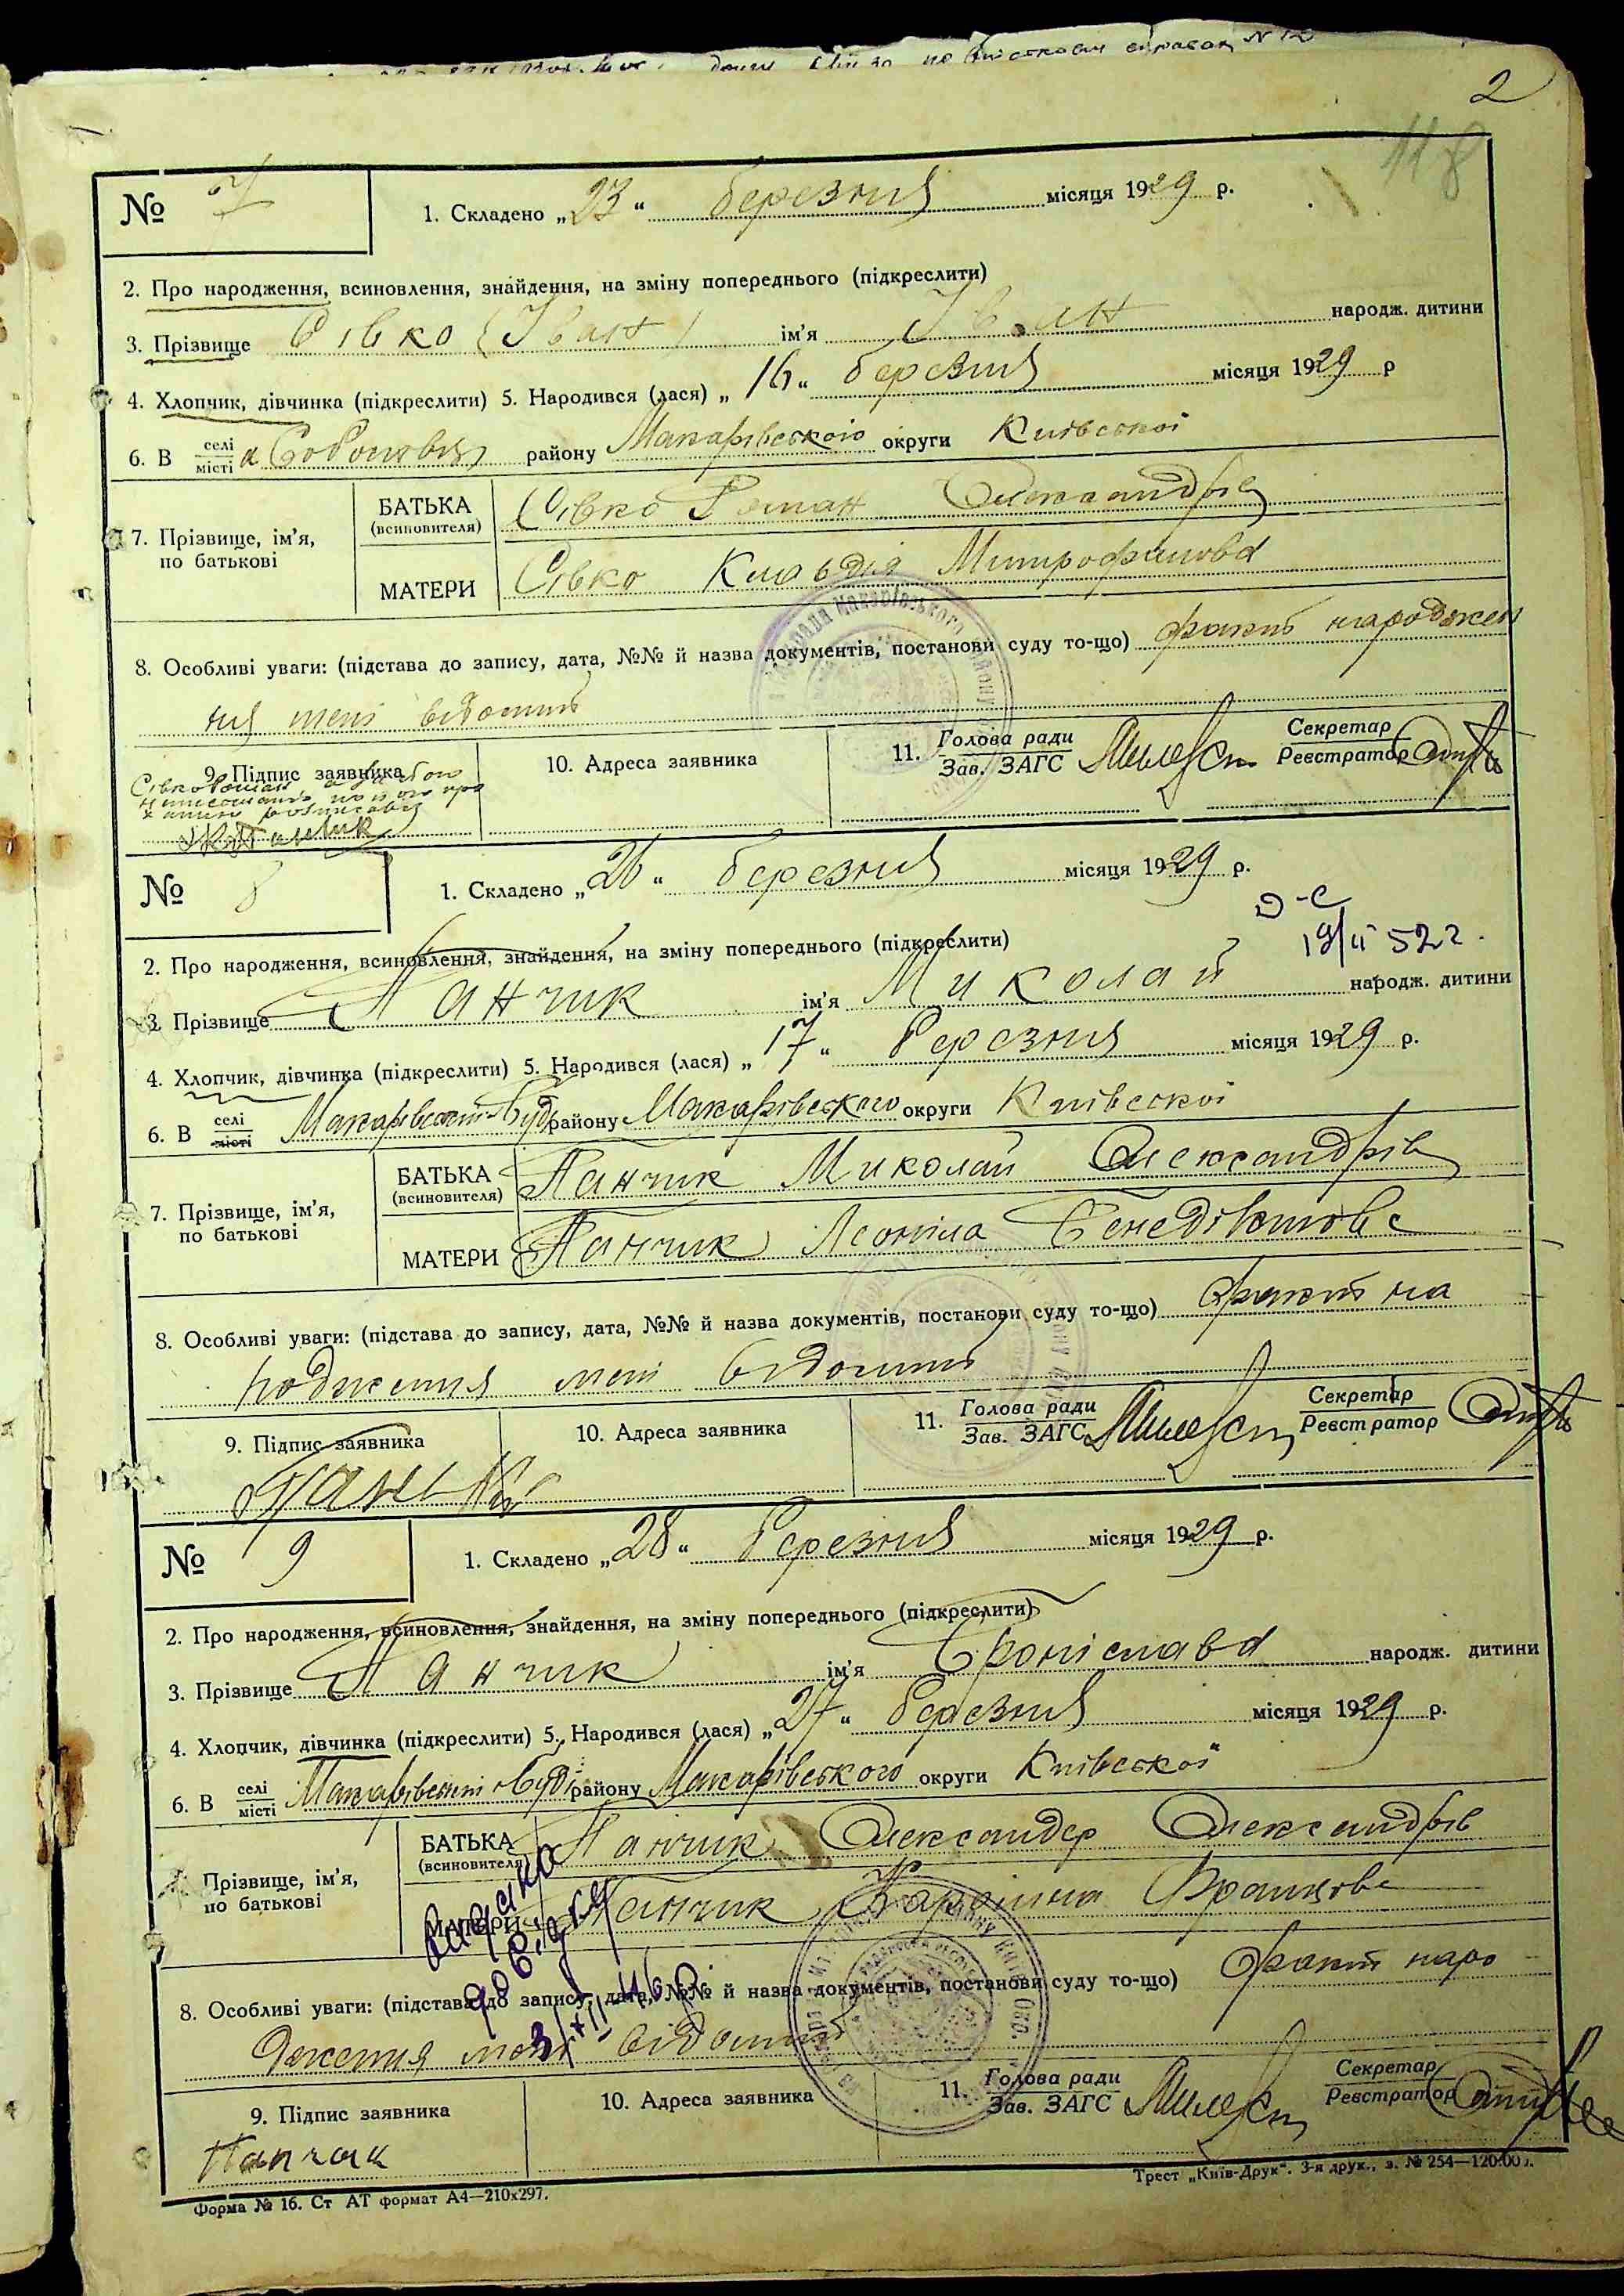 2
118
№ 7
1. Складено „23“ березня місяця 1929 р.
2. Про народження, всиновлення, знайдення, на зміну попереднього (підкреслити)
3. Прізвище Сівко (Іван) ім'я Іван народж. дитини
4. Хлопчик, дівчинка (підкреслити) 5. Народився (лася) „16“ березня місяця 1929 р
6. В селі/місті району Макарівського округи Київської
7. Прізвище, ім'я, по батькові
БАТЬКА (всиновителя) Сівко Роман Олександрів
МАТЕРИ Сівко Клавдія Митрофанова
8. Особливі уваги: (підстава до запису, дата, №№ й назва документів, постанови суду то-що) факт народжен
ня мені відомий
9. Підпис заявника 10. Адреса заявника 11. Голова ради/Зав. ЗАГС Секретар/Реєстратор
Сівко Роман
№ 8
1. Складено „26“ березня місяця 1929 р.
19/II 52 г.
2. Про народження, всиновлення, знайдення, на зміну попереднього (підкреслити)
3. Прізвище Панчик ім'я Миколай народж. дитини
4. Хлопчик, дівчинка (підкреслити) 5. Народився (лася) „17“ березня місяця 1929 р.
6. В селі/місті Макарівській Буді району Макарівського округи Київської
7. Прізвище, ім'я, по батькові
БАТЬКА (всиновителя) Панчик Миколай Олександрів
МАТЕРИ Панчик Леоніла Бенедіктова
8. Особливі уваги: (підстава до запису, дата, №№ й назва документів, постанови суду то-що) факт на
родження мені відомий
9. Підпис заявника 10. Адреса заявника 11. Голова ради/Зав. ЗАГС Секретар/Реєстратор
№ 9
1. Складено „28“ березня місяця 1929 р.
2. Про народження, всиновлення, знайдення, на зміну попереднього (підкреслити)
3. Прізвище Панчик ім'я Броніслава народж. дитини
4. Хлопчик, дівчинка (підкреслити) 5. Народився (лася) „27“ березня місяця 1929 р.
6. В селі/місті Макарівській Буді району Макарівського округи Київської
Прізвище, ім'я, по батькові
БАТЬКА (всиновителя) Панчик Олександер Олександрів
МАТЕРИ Панчик Кароліна Францова
8. Особливі уваги: (підстава до запису, дата, №№ й назва документів, постанови суду то-що) факт наро
дження мені відомий
9. Підпис заявника 10. Адреса заявника 11. Голова ради/Зав. ЗАГС Секретар/Реєстратор
Панчик
Форма № 16. Ст АТ формат А4—210х297.
Трест „Київ-Друк“. 3-я друк., з. № 254—120.00